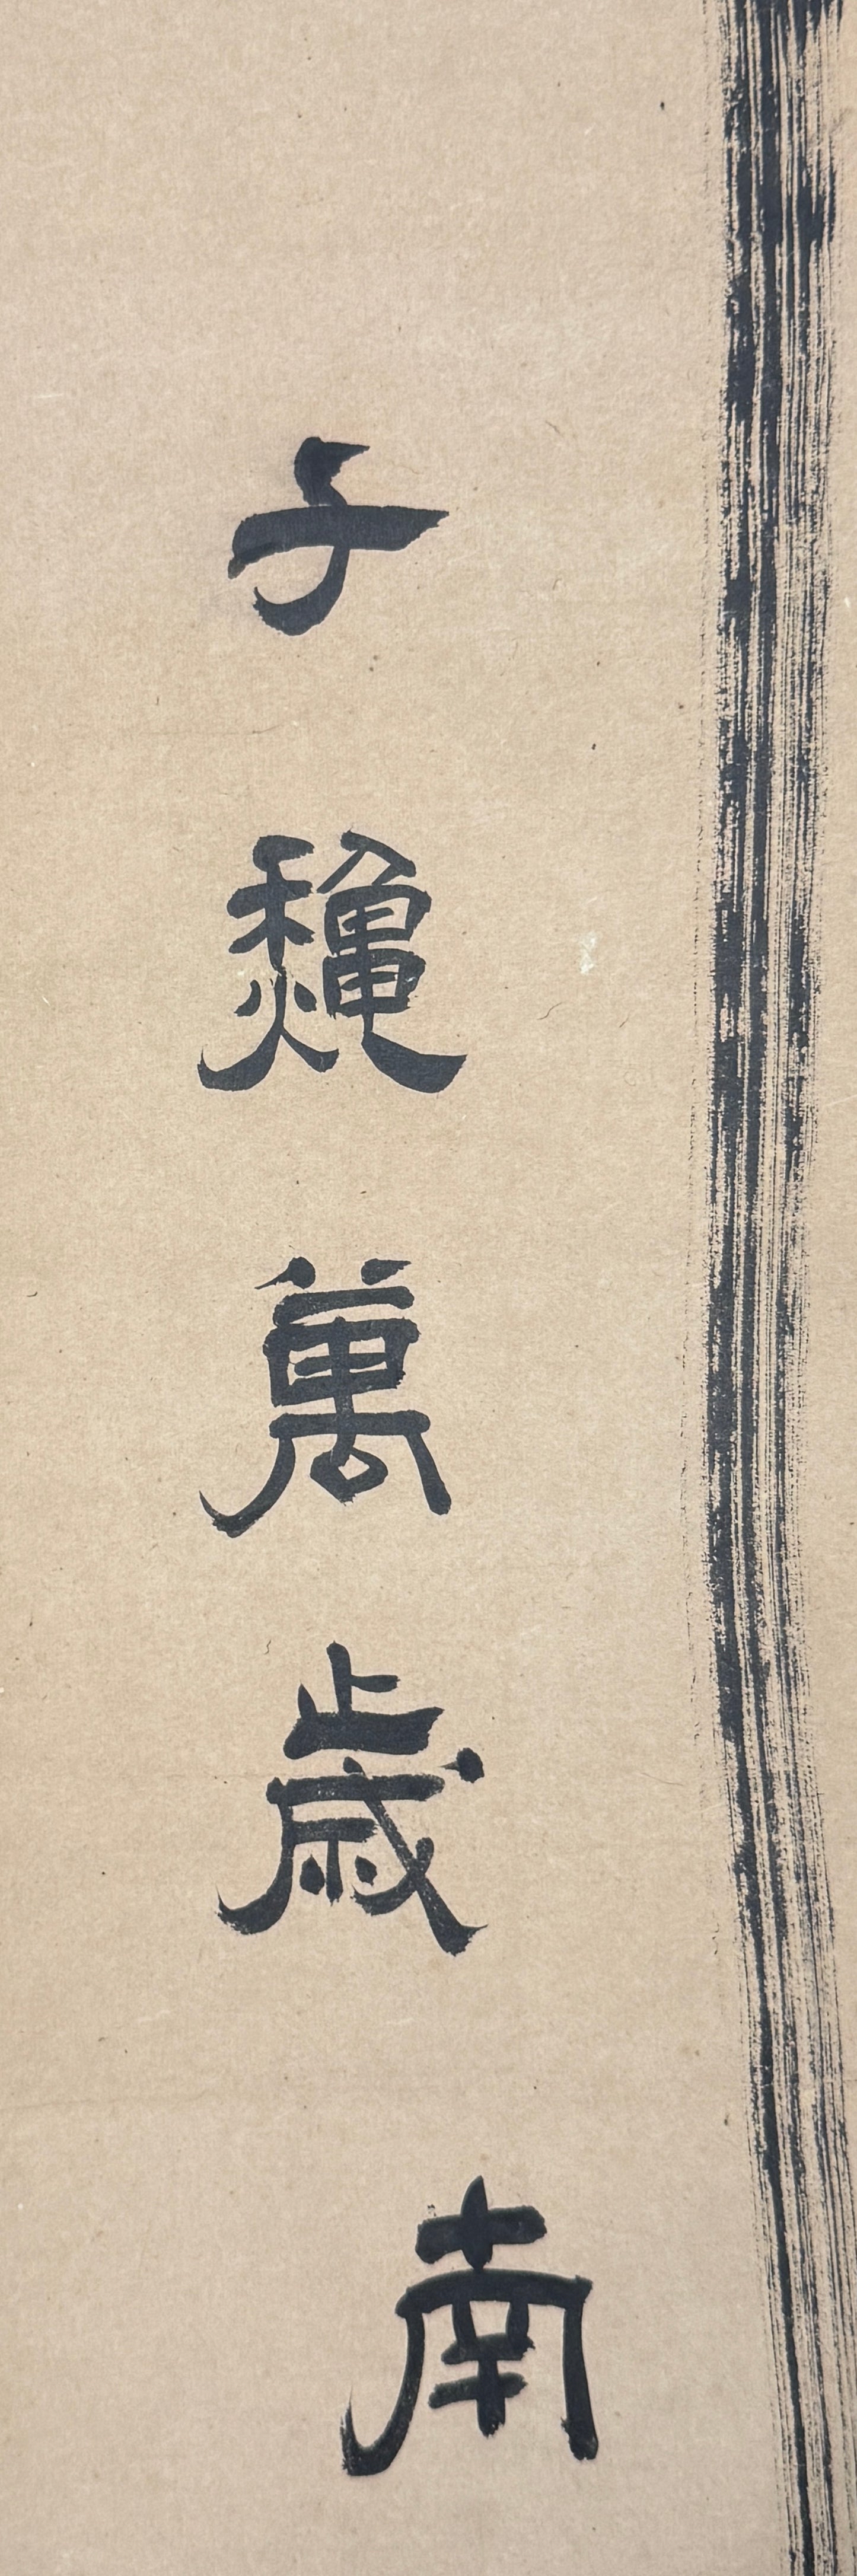 子龝萬歲南